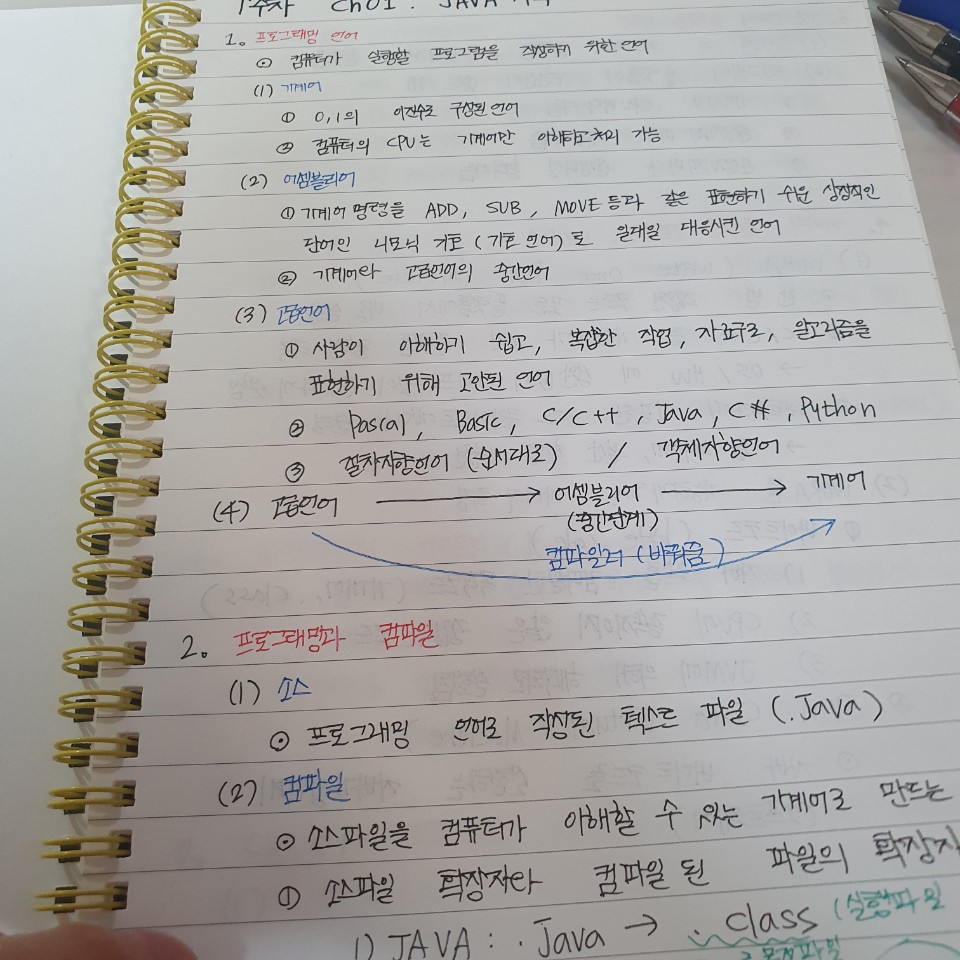 1주차 Ch01. JAVA
1. 프로그래밍 언어
⊙ 컴퓨터가 실행할 프로그램을 작성하기 위한 언어
(1) 기계어
① 0,1의 이진수로 구성된 언어
② 컴퓨터의 CPU는 기계어만 이해하고 처리 가능
(2) 어셈블리어
① 기계어 명령을 ADD, SUB, MOVE 등과 같은 표현하기 쉬운 상징적인
단어인 니모닉 기호(기호 언어)로 일대일 대응시킨 언어
② 기계어와 고급언어의 중간언어
(3) 고급언어
① 사람이 이해하기 쉽고, 복잡한 작업, 자료구조, 알고리즘을
표현하기 위해 고안된 언어
② Pascal, Basic, C/C++, Java, C#, Python
③ 절차지향언어 (순서대로) / 객체지향언어
(4) 고급언어 → 어셈블리어 → 기계어
(중간단계)
컴파일러 (바꿔줌)
2. 프로그래밍과 컴파일
(1) 소스
⊙ 프로그래밍 언어로 작성된 텍스트 파일 (.Java)
(2) 컴파일
⊙ 소스파일을 컴퓨터가 이해할 수 있는 기계어로 만드는
① 소스파일 확장자와 컴파일 된 파일의 확장자
1) JAVA : .Java → .class (실행파일